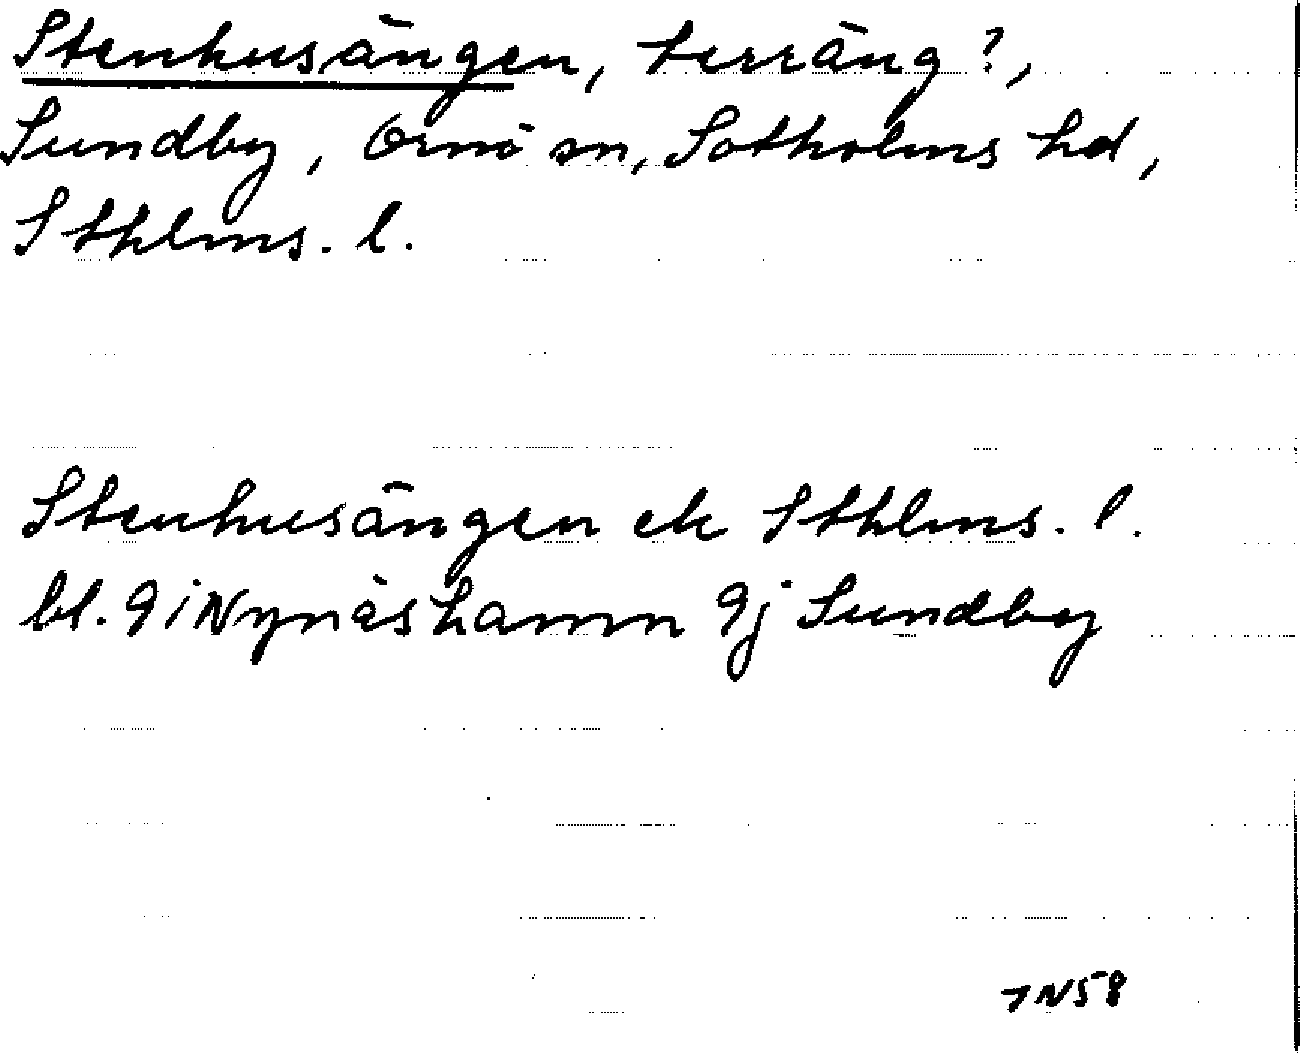 Stenhusängen, terräng?,
Sundby, Ornö sn, Sotholms hd,
Sthlms. l.
Stenhusängen ek Sthlms. l.
bl. 9i Nynäshamn 9j Sundby
7N58